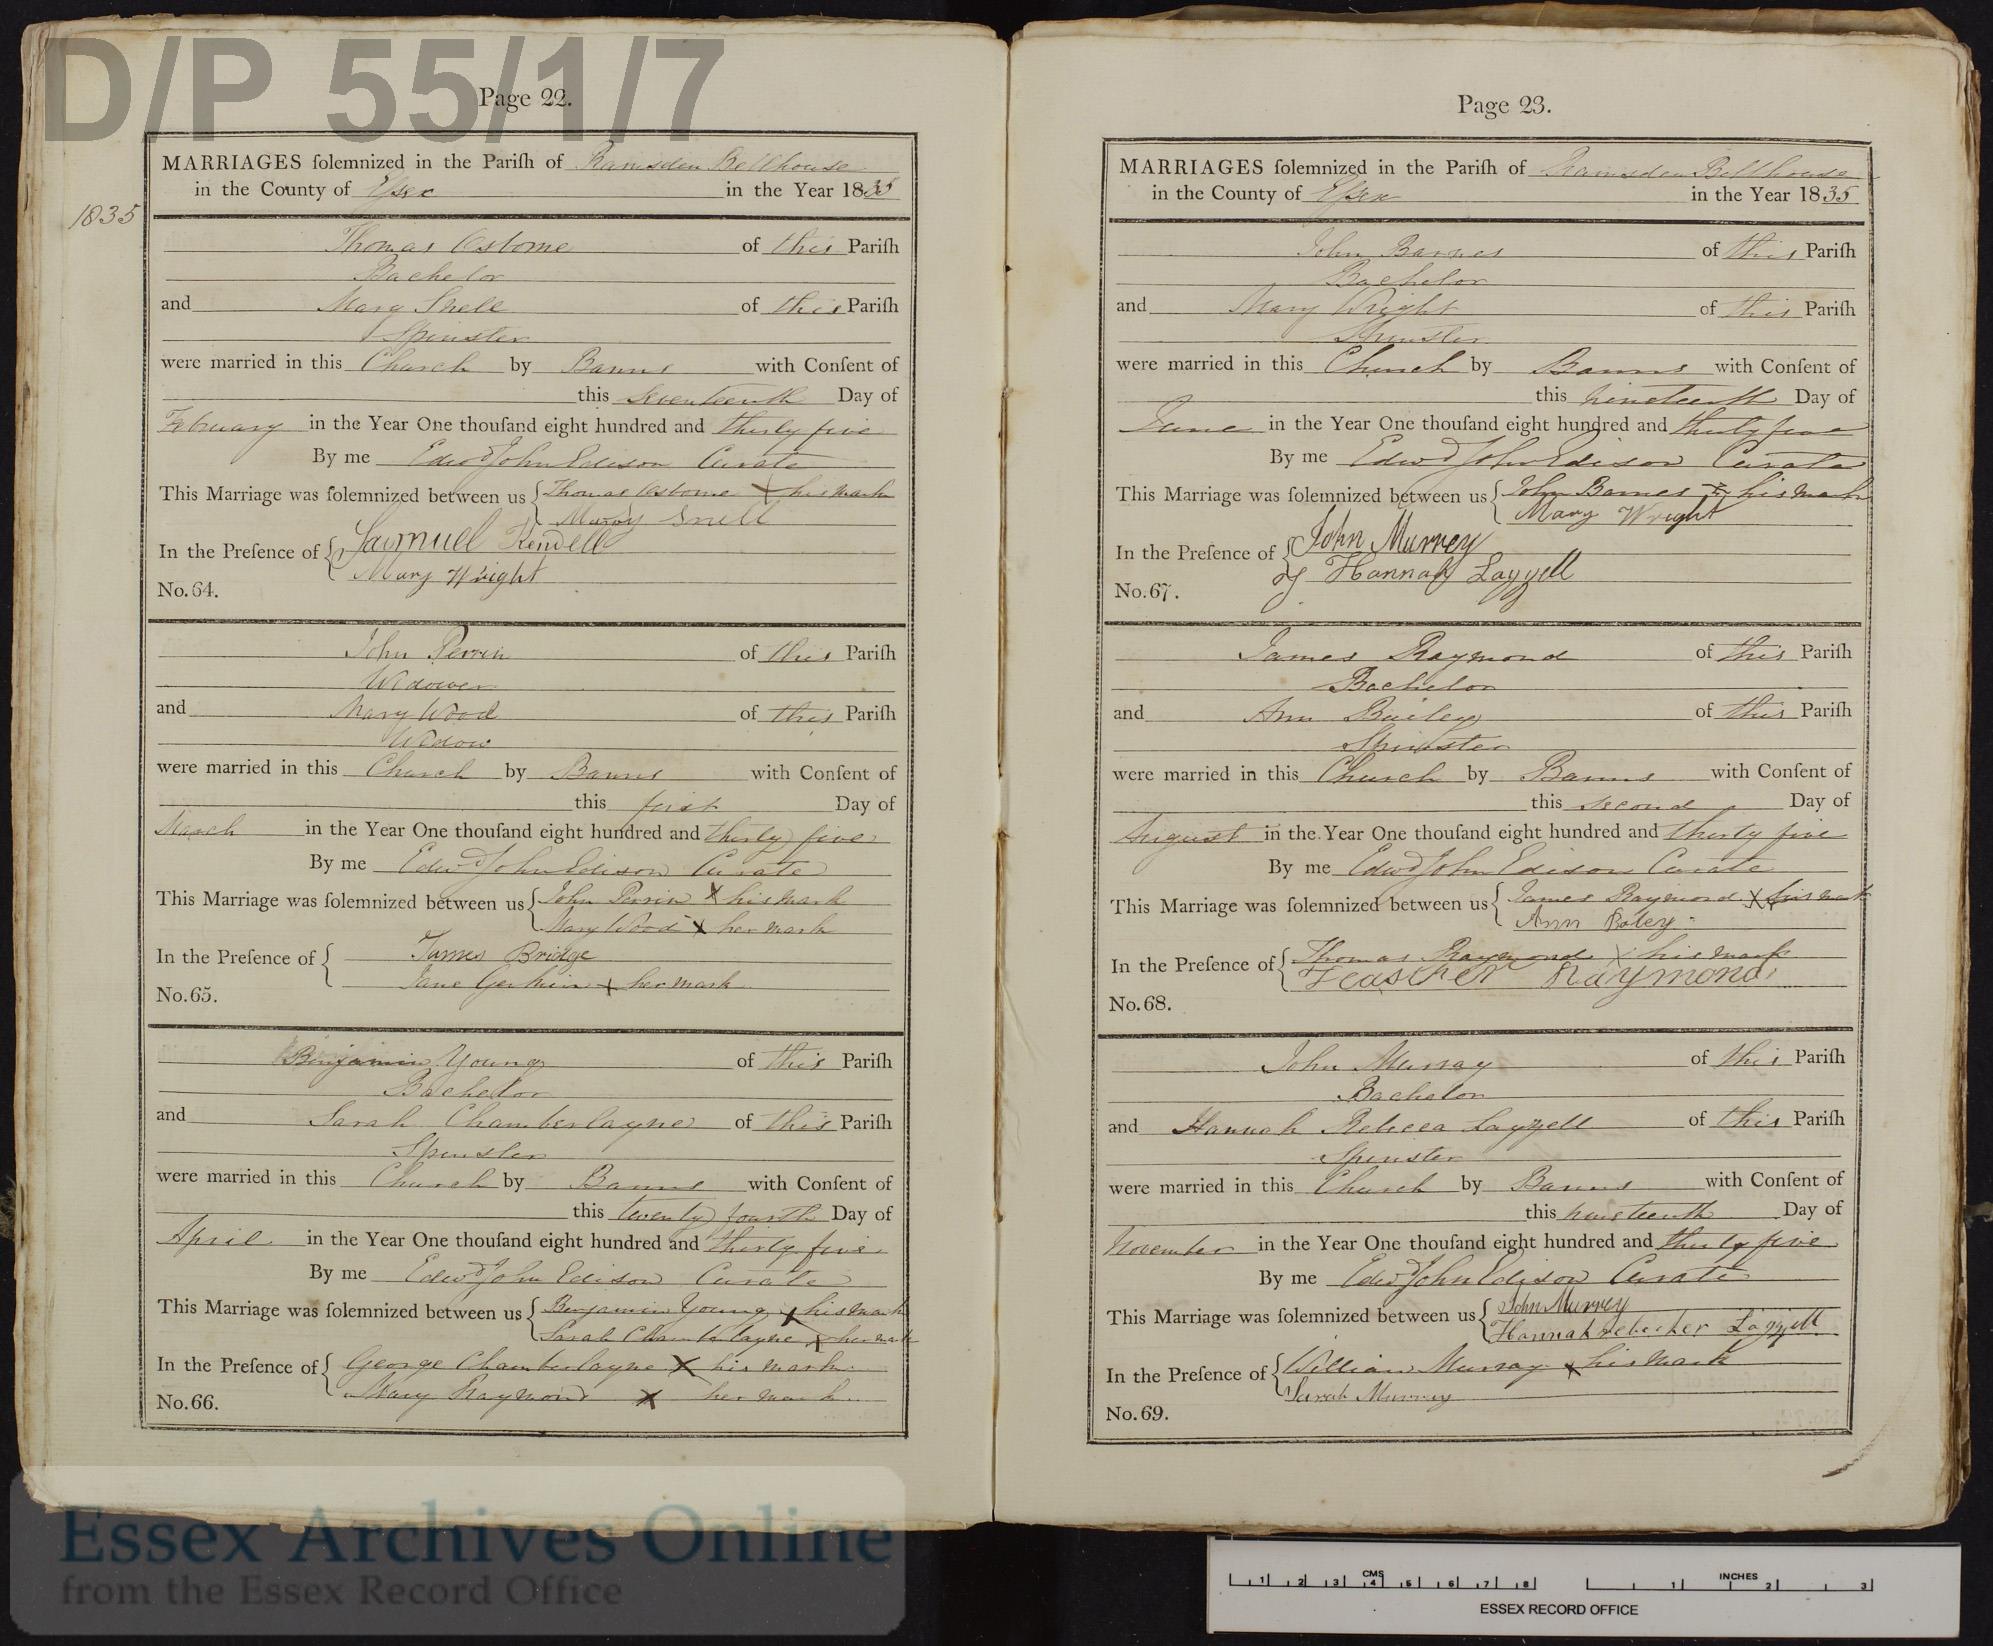 D/P 55/1/7
Page 22.
MARRIAGES ſolemnized in the Pariſh of Ramsden Bellhouse
in the County of Eſsex in the Year 1835
1835
Thomas Osborne of this Pariſh
Bachelor
and Mary Snell of this Pariſh
Spinster
were married in this Church by Banns with Conſent of
this Seventeenth Day of
February in the Year One thouſand eight hundred and thirty five
By me Edwd John Edison Curate
This Marriage was ſolemnized between us Thomas Osborne X his mark
Mary Snell
In the Preſence of Samuel Kendell
Mary Wright
No. 64.
John Perrin of this Pariſh
Widower
and Mary Wood of this Pariſh
Widow
were married in this Church by Banns with Conſent of
this first Day of
March in the Year One thouſand eight hundred and thirty five
By me Edwd John Edison Curate
This Marriage was ſolemnized between us John Perrin X his mark
Mary Wood X her mark
In the Preſence of James Bridge
Jane X her mark
No. 65.
Benjamin Young of this Pariſh
Bachelor
and Sarah Chamberlayne of this Pariſh
Spinster
were married in this Church by Banns with Conſent of
this twenty fourth Day of
April in the Year One thouſand eight hundred and thirty five
By me Edwd John Edison Curate
This Marriage was ſolemnized between us Benjamin Young X his mark
Sarah Chamberlayne X her mark
In the Preſence of George Chamberlayne X his mark
Mary Raymond X her mark
No. 66.
Page 23.
MARRIAGES ſolemnized in the Pariſh of Ramsden Bellhouse
in the County of Eſsex in the Year 1835
John Barnes of this Pariſh
Bachelor
and Mary Wright of this Pariſh
Spinster
were married in this Church by Banns with Conſent of
this nineteenth Day of
June in the Year One thouſand eight hundred and thirty five
By me Edwd John Edison Curate
This Marriage was ſolemnized between us John Barnes X his mark
Mary Wright
In the Preſence of John Murrey
Hannah Layzell
No. 67.
James Raymond of this Pariſh
Bachelor
and Ann Bailey of this Pariſh
Spinster
were married in this Church by Banns with Conſent of
this second Day of
August in the Year One thouſand eight hundred and thirty five
By me Edwd John Edison Curate
This Marriage was ſolemnized between us James Raymond X his mark
Ann Baley
In the Preſence of Thomas Raymond X his mark
Raymond
No. 68.
John Murray of this Pariſh
Bachelor
and Hannah Rebecca Layzell of this Pariſh
Spinster
were married in this Church by Banns with Conſent of
this nineteenth Day of
November in the Year One thouſand eight hundred and thirty five
By me Edwd John Edison Curate
This Marriage was ſolemnized between us John Murrey
Hannah Layzell
In the Preſence of William Murray X his mark
Sarah Murrey
No. 69.
Essex Archives Online
from the Essex Record Office
CMS
1 2 3 4 5 6 7 8
INCHES
1 2 3
ESSEX RECORD OFFICE